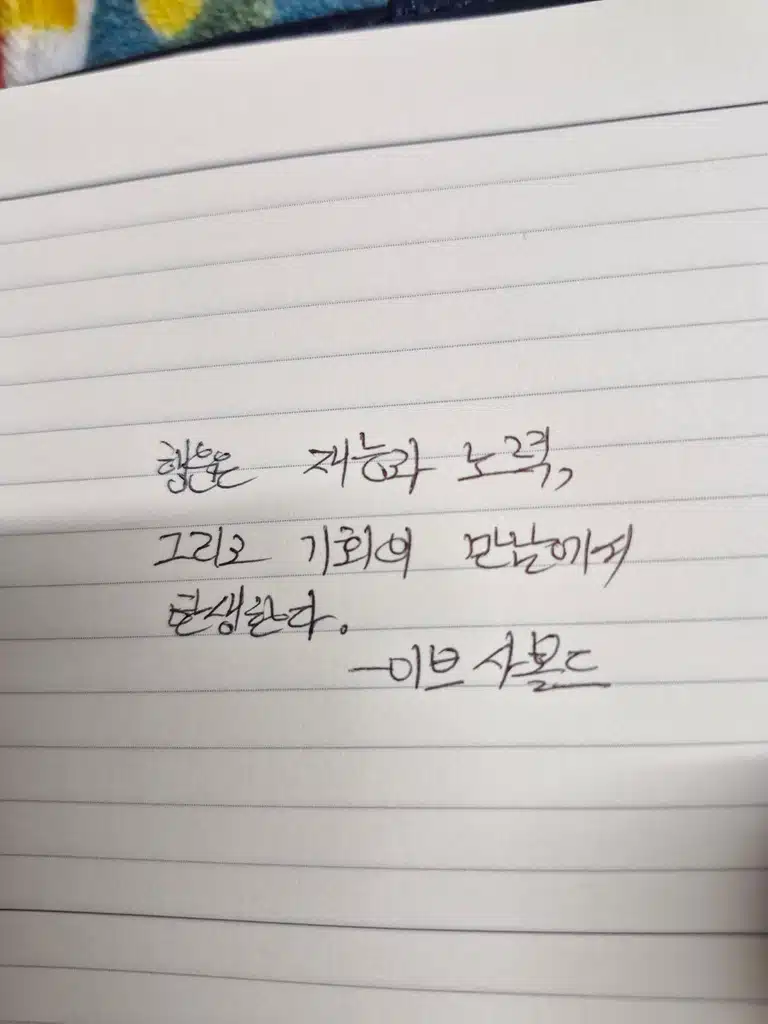 행운은 재능과 노력,
그리고 기회의 만남에서
탄생한다.
-이브 샤몰드